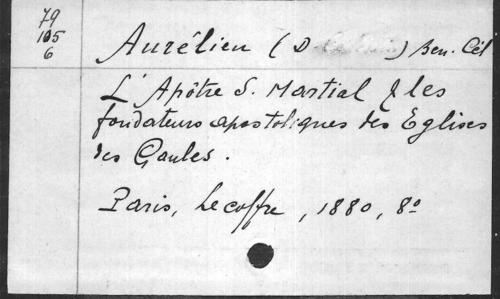 79
105
6
Aurélien (D ) Ben. Cél
L'Apôtre S. Martial & les
fondateurs apostoliques des Eglises
des Gaules.
Paris, Lecoffre, 1880, 8º